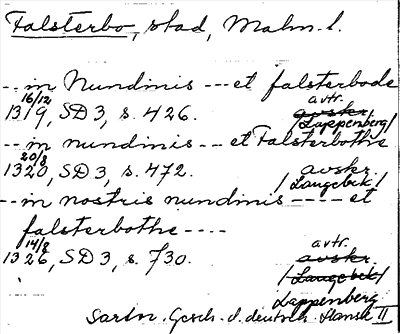 Falsterbo, stad, Malm. l.
-- in Nundinis --- et falsterbode
16/12 avtr.
1319, SD 3, s. 426. avskr.
/Lappenberg/
-- in nundinis -- et Falsterbothe
20/8
1320, SD 3, s. 472. avskr.
/Langebek/
-- in nostris nundinis ---- et
falsterbothe ----
14/8 avtr.
1326, SD 3, s. 730. avskr.
/Langebek/
Lappenberg
Sartor. Gesch. d. deutsch. Hanse II